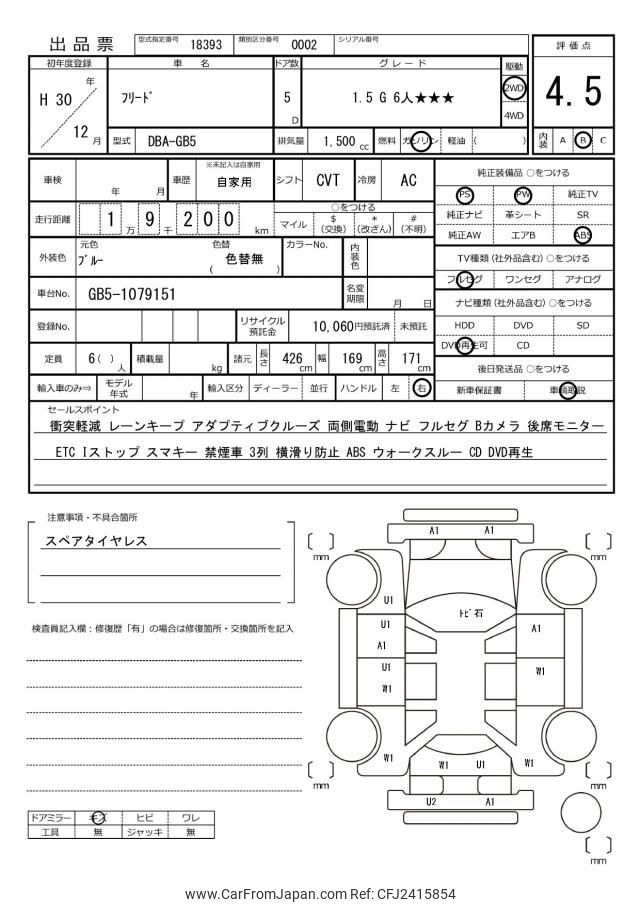 出品票
型式指定番号 18393 類別区分番号 0002 シリアル番号
評価点
4.5
初年度登録 車名 ドア数 グレード 駆動
H 30 年 12 月
ﾌﾘｰﾄﾞ
5 D
1.5 G 6人★★★
2WD
4WD
型式 DBA-GB5 排気量 1,500 cc 燃料 ガソリン 軽油 ( )
内装 A B C
車検 年 月 車歴 ※未記入は自家用 自家用 シフト CVT 冷房 AC
走行距離 1 万 9 千 2 0 0 km
○をつける
マイル $(交換) *(改ざん) #(不明)
外装色 元色 ﾌﾞﾙｰ 色替 ( 色替無 ) カラーNo. 内装色
車台No. GB5-1079151 名変期限 月 日
登録No. リサイクル預託金 10,060円預託済 未預託
定員 6( )人 積載量 kg 諸元 長さ 426 cm 幅 169 cm 高さ 171 cm
輸入車のみ⇒ モデル年式 年 輸入区分 ディーラー 並行 ハンドル 左 右
純正装備品 ○をつける
PS PW 純正TV
純正ナビ 革シート SR
純正AW エアB ABS
TV種類(社外品含む) ○をつける
フルセグ ワンセグ アナログ
ナビ種類(社外品含む) ○をつける
HDD DVD SD
DVD再生可 CD
後日発送品 ○をつける
新車保証書 車輌取説
セールスポイント
衝突軽減 レーンキープ アダプティブクルーズ 両側電動 ナビ フルセグ Bカメラ 後席モニター
ETC Iストップ スマキー 禁煙車 3列 横滑り防止 ABS ウォークスルー CD DVD再生
注意事項・不具合箇所
スペアタイヤレス
検査員記入欄：修復歴「有」の場合は修復箇所・交換箇所を記入
ドアミラー キズ ヒビ ワレ
工具 無 ジャッキ 無
A1 A1
mm mm
U1
ﾄﾋﾞ石
U1 A1
A1
U1 W1
W1
W1 W1 U1 W1
mm mm
U2 A1
mm
www.CarFromJapan.com Ref: CFJ2415854